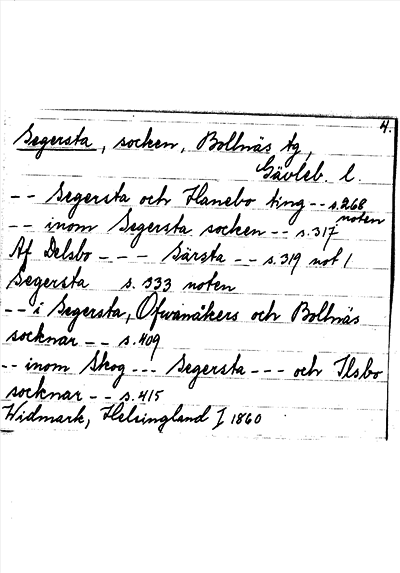 4.
Segersta, socken, Bollnäs tg,
Gävleb. l.
-- Segersta och Hanebo ting -- s.268
noten
-- inom Segersta socken -- s.317
Af Delsbo --- Särsta -- s.319 not 1
Segersta s. 333 noten
-- i Segersta, Ofvanåkers och Bollnäs
socknar -- s.409
-- inom Skog --- Segersta --- och Ilsbo
socknar -- s.415
Widmark, Helsingland I 1860